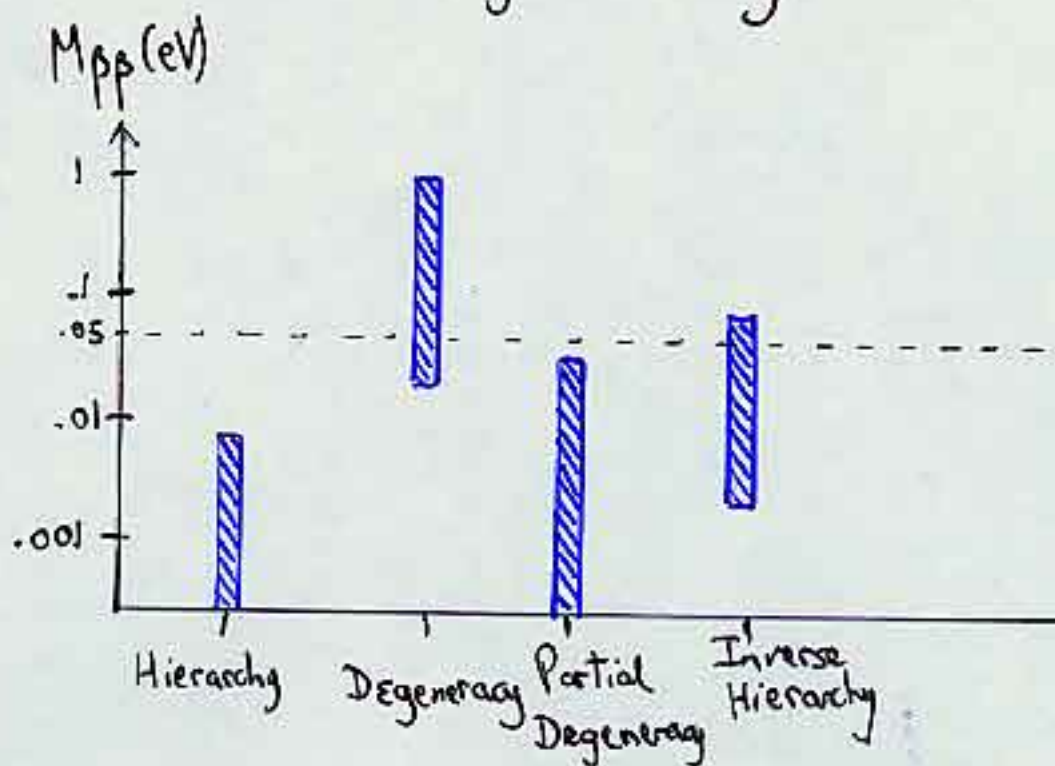 Mββ(eV)
1
.1
.05
.01
.001
Hierarchy
Degeneracy
Partial
Degeneracy
Inverse
Hierarchy